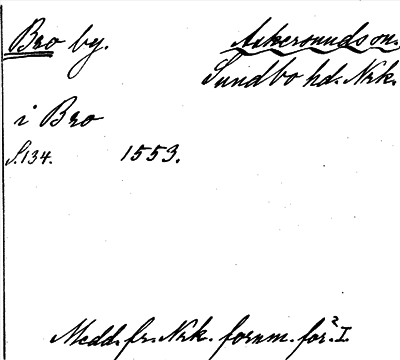 Bro by. Askersunds sn.
Sundbo hd. Nrk.
i Bro
S. 134. 1553.
Medd. fr. Nrk. fornm. för. I